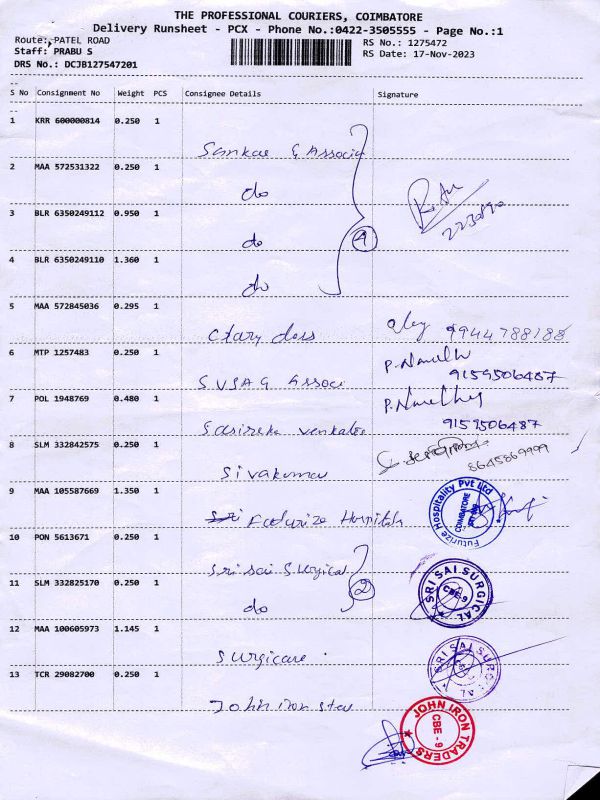 THE PROFESSIONAL COURIERS, COIMBATORE
Delivery Runsheet - PCX - Phone No.:0422-3505555 - Page No.:1
Route:,PATEL ROAD
RS No.: 1275472
Staff: PRABU S
RS Date: 17-Nov-2023
DRS No.: DCJB127547201
S No Consignment No Weight PCS Consignee Details Signature
1 KRR 600000814 0.250 1
Sankar & Associ
2 MAA 572531322 0.250 1
do
3 BLR 6350249112 0.950 1
do
4
2230890
4 BLR 6350249110 1.360 1
do
5 MAA 572845036 0.295 1
9944788188
6 MTP 1257483 0.250 1
SVSA G Associ
9159506487
7 POL 1948769 0.480 1
Sasireka venkates
9159506487
8 SLM 332842575 0.250 1
Sivakumar
8645869999
9 MAA 105587669 1.350 1
Hospitals
Futurize Hospitality Pvt Ltd
COIMBATORE
10 PON 5613671 0.250 1
Sri Sai Surgical
11 SLM 332825170 0.250 1
do
2
SRI SAI SURGICAL
CBE-9
12 MAA 100605973 1.145 1
Surgicare
SRI SAI SURGICAL
13 TCR 29082700 0.250 1
John iron
JOHN IRON TRADERS
CBE - 9